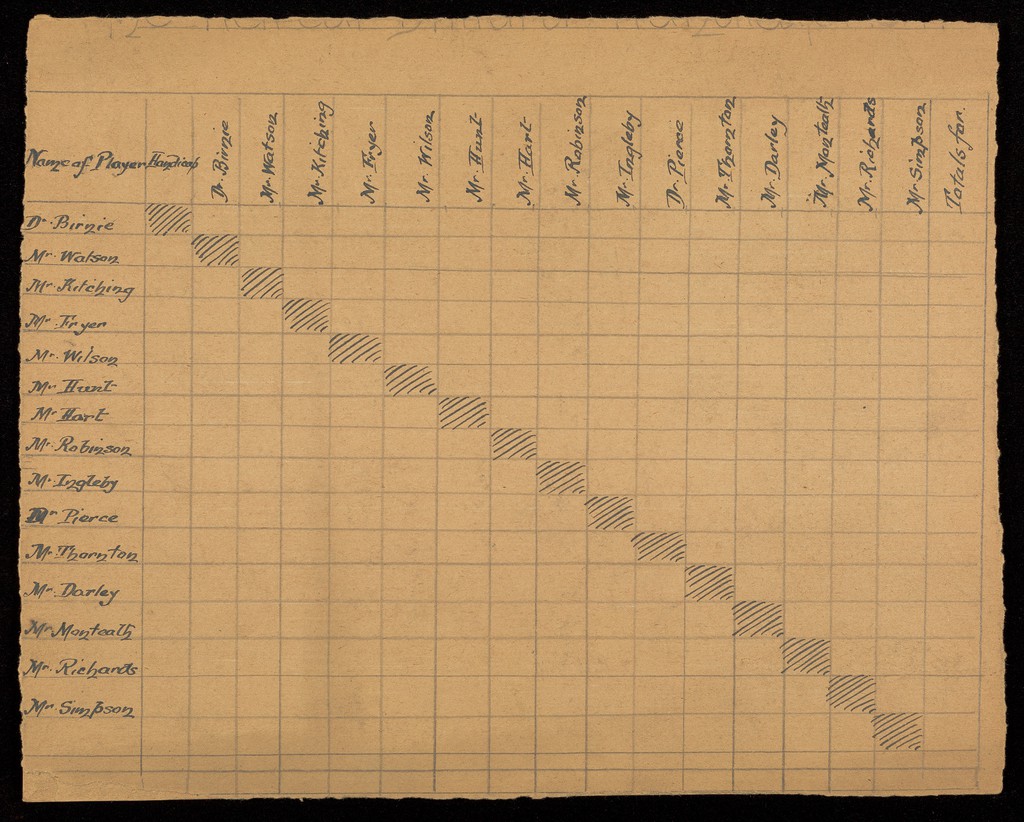 Name of Player Handicap Dr. Birnie Mr. Watson Mr. Kitching Mr. Fryer Mr. Wilson Mr. Hunt Mr. Hart Mr. Robinson Mr. Ingleby Dr. Pierce Mr. Thornton Mr. Darley Mr. Monteath Mr. Richards Mr. Simpson Totals for.
Dr. Birnie
Mr. Watson
Mr. Kitching
Mr. Fryer
Mr. Wilson
Mr. Hunt
Mr Hart
Mr. Robinson
Mr. Ingleby
Dr Pierce
Mr. Thornton
Mr. Darley
Mr Monteath
Mr. Richards
Mr Simpson